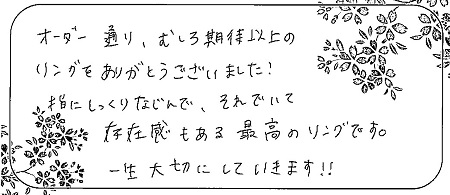 オーダー通り、むしろ期待以上の
リングをありがとうございました!
指にしっくりなじんで、それでいて
存在感もある最高のリングです。
一生大切にしていきます!!